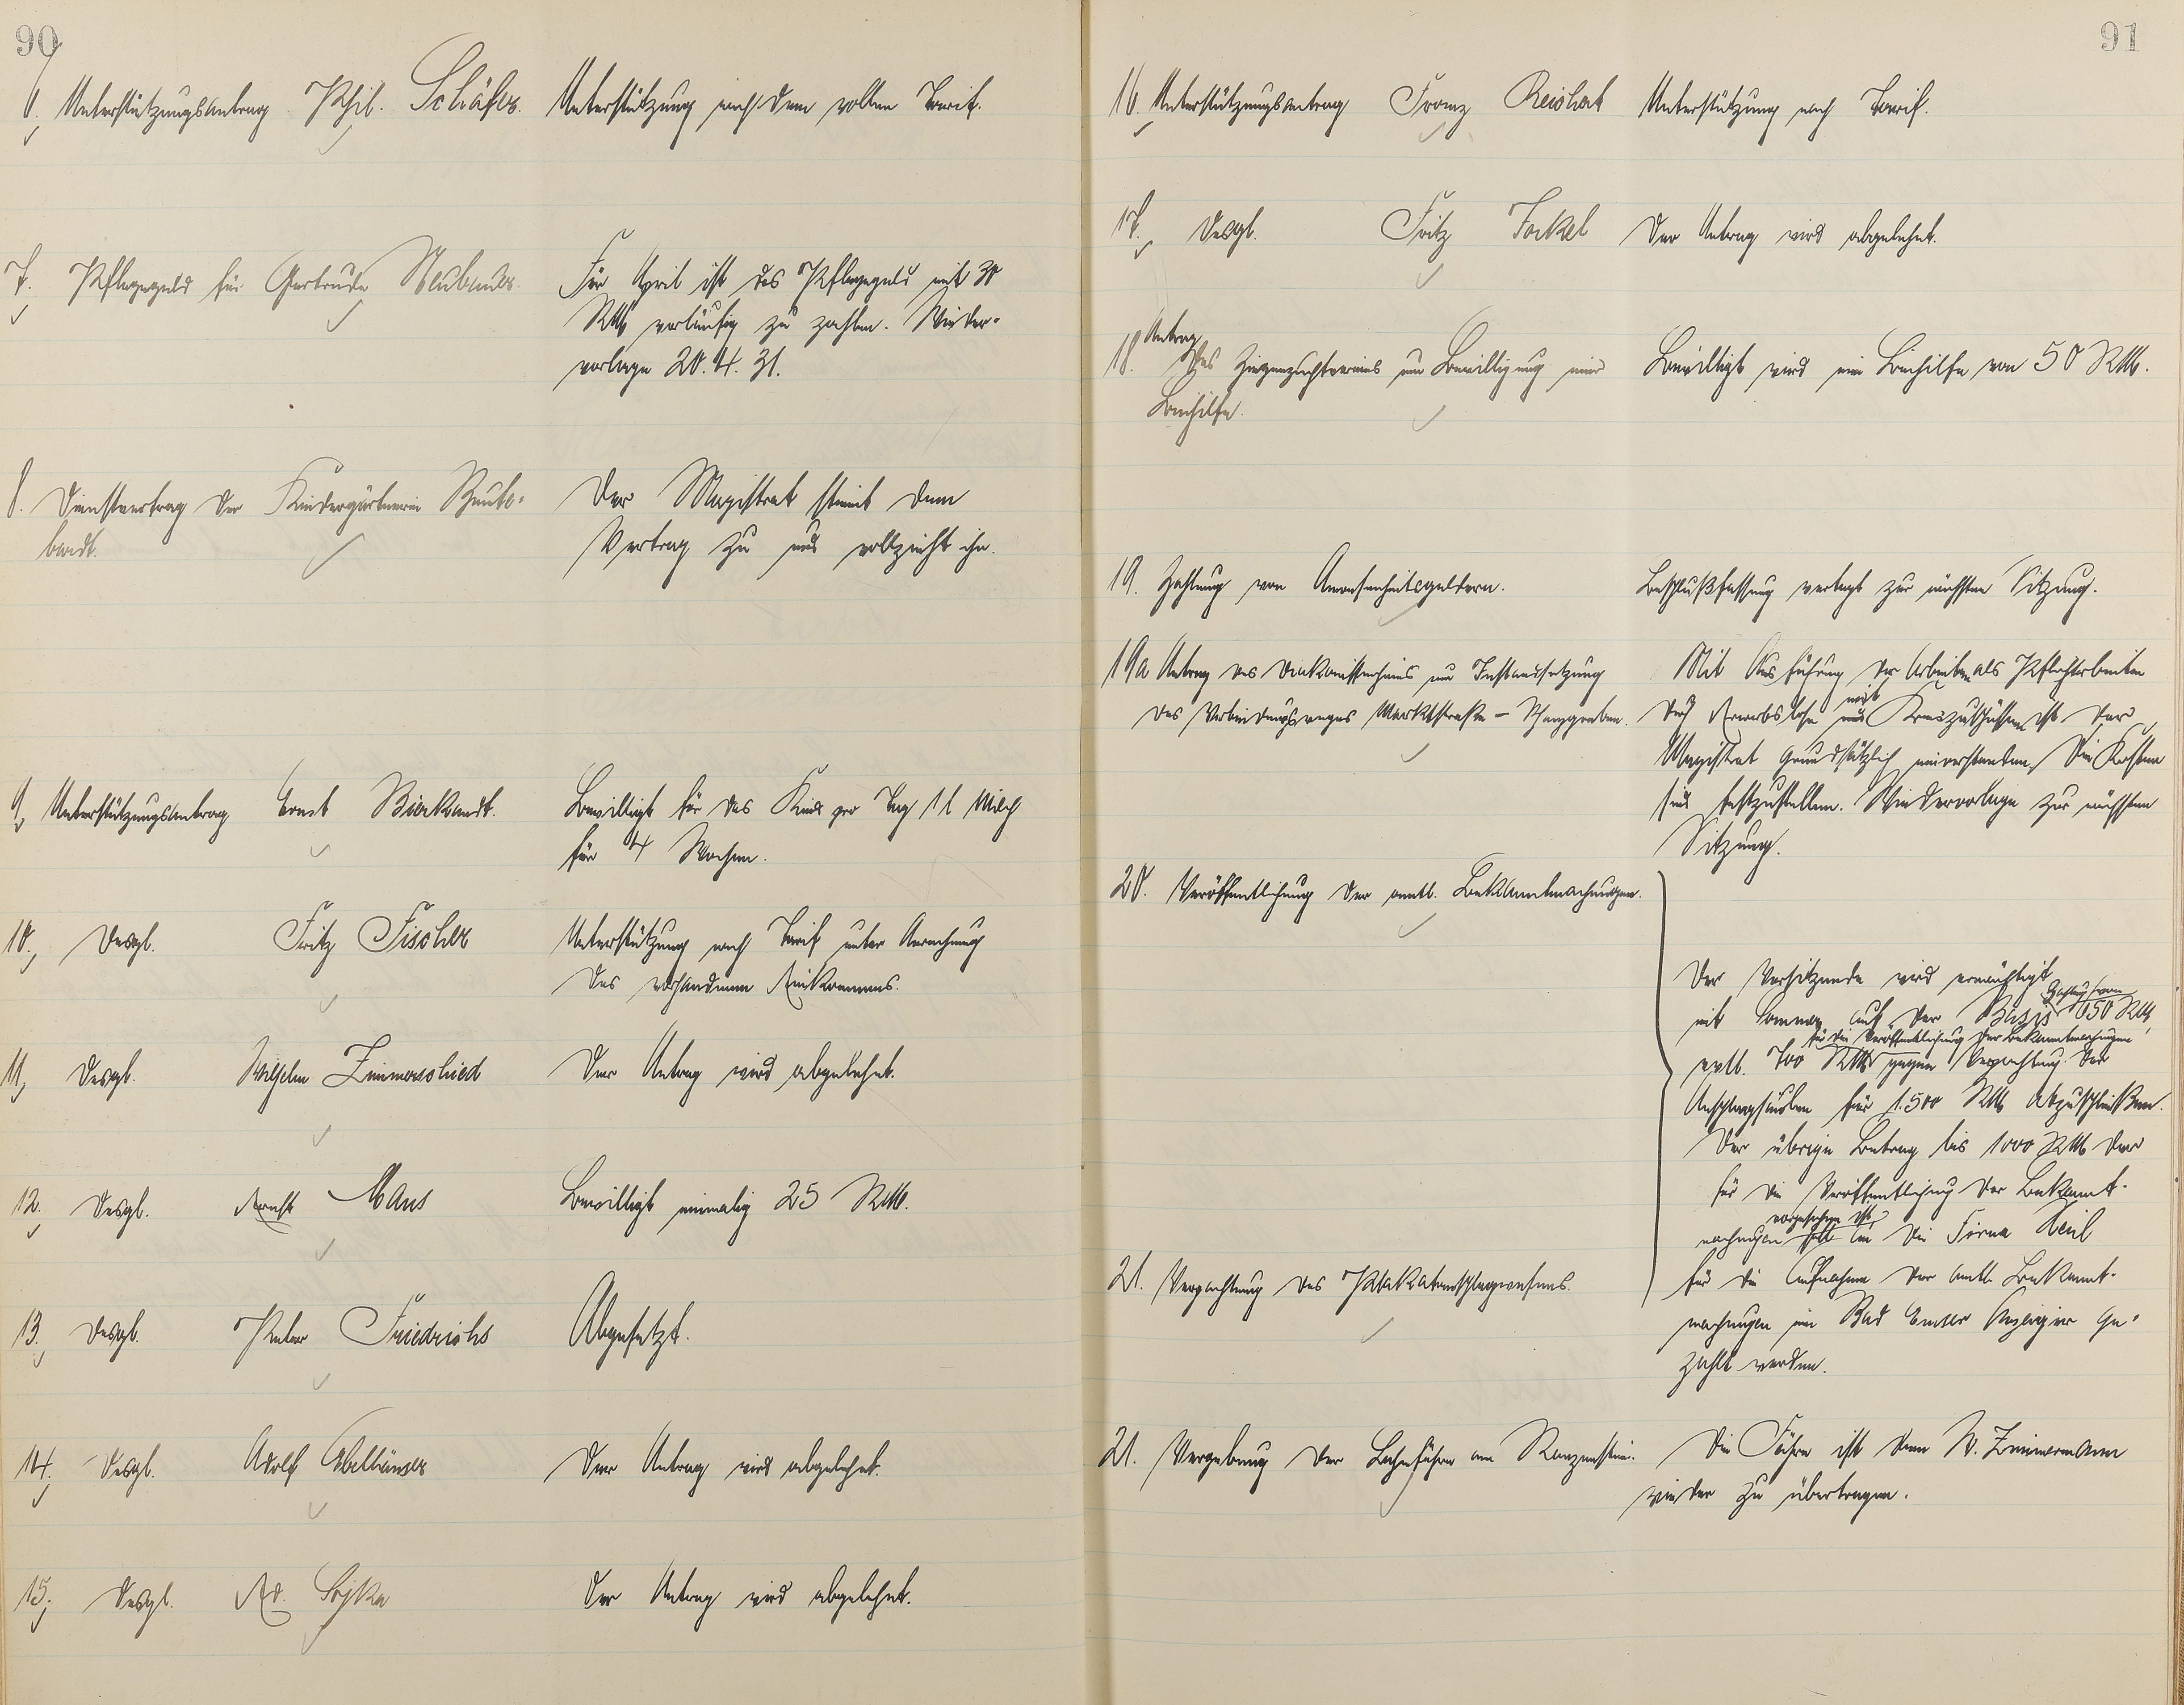 90
6. Unterstützungsantrag Phil. Schäfer. Unterstützung nach dem vollen Tarif.
7. Pflegegeld für Gertrude Neubauer. Für April ist das Pflegegeld mit 30
RM vorläufig zu zahlen. Wieder-
vorlage 20.4.31.
8. Dienstvertrag der Kindergärtnerin
bandt.
Der Magistrat stimmt dem
Vertrag zu und vollzieht ihn.
9. Unterstützungsantrag Ernst Bierbandt. Bewilligt für das Kind pro Tag 1 l Milch
für 4 Wochen.
10. Desgl. Fritz Fischer Unterstützung nach Tarif unter Anrechnung
des vorhandenen Einkommens.
11. Desgl. Wilhelm Zimmerschied Der Antrag wird abgelehnt.
12. Desgl. Ernst Maus Bewilligt einmalig 25 RM.
13. Desgl. Peter Friedrichs Abgesetzt.
14. Desgl. Adolf Ebelhäuser Der Antrag wird abgelehnt.
15. Desgl. Ed. Sojka Der Antrag wird abgelehnt.
91
16. Unterstützungsantrag Franz Reichert Unterstützung nach Tarif.
17. Desgl. Fritz Jockel Der Antrag wird abgelehnt.
18. Antrag des Ziegenzuchtvereins um Bewilligung einer
Beihilfe.
Bewilligt wird eine Beihilfe von 50 RM.
19. Zahlung von Anwesenheitsgeldern. Beschlußfassung vertagt zur nächsten Sitzung.
19a Antrag des Diakonissenheims um Instandsetzung
des Verbindungsweges Marktstraße - Schanzgraben.
Mit Ausführung der Arbeiten als Pflichtarbeiten
durch Erwerbslose und mit Kreiszuschüssen ist der
Magistrat grundsätzlich einverstanden. Die Kosten
sind festzustellen. Wiedervorlage zur nächsten
Sitzung.
20. Veröffentlichung der amtl. Bekanntmachungen.
Der Vorsitzende wird ermächtigt
mit Sommer auf der Basis Zahlung von 650 RM
für die Veröffentlichung der Bekanntmachungen
evtl. 700 RM gegen Verpachtung der
Anschlagsäulen für 1.500 RM abzuschließen.
Der übrige Betrag bis 1000 RM der
für die Veröffentlichung der Bekannt-
machungen vorgesehen ist soll an die Firma Keil
für die Aufnahme der amtl. Bekannt-
machungen im Bad Emser Anzeiger ge-
zahlt werden.
21. Verpachtung des Plakatanschlagwesens.
21. Vergebung der Lahnfähre am Konzenstein. Die Fähre ist dem W. Zimmermann
wieder zu übertragen.